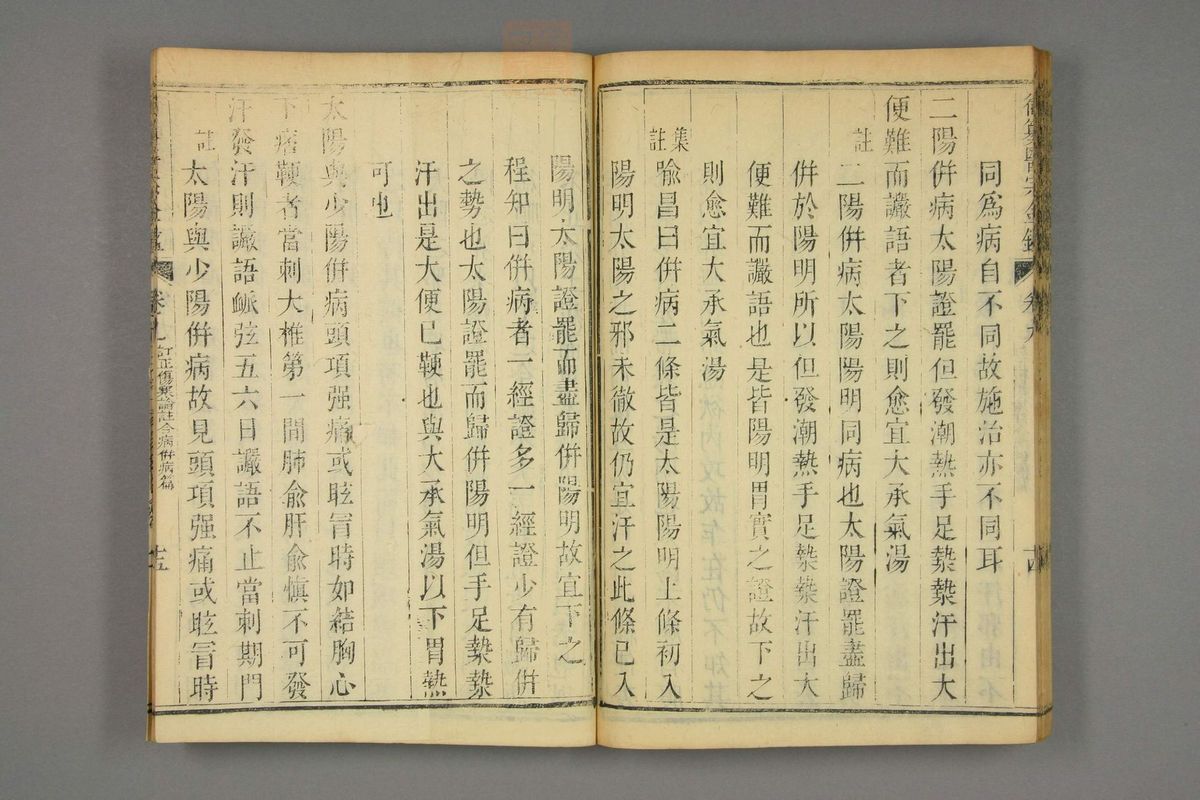 同爲病自不同故施治亦不同耳
二陽併病太陽證罷但發潮熱手足漐漐汗出大
便難而讝語者下之則愈宜大承氣湯
註
二陽併病太陽陽明同病也太陽證罷盡歸
併於陽明所以但發潮熱手足漐漐汗出大
便難而讝語也是皆陽明胃實之證故下之
則愈宜大承氣湯
集註
喻昌曰併病二條皆是太陽陽明上條初入
陽明太陽之邪未徹故仍宜汗之此條已入
陽明太陽證罷而盡歸併陽明故宜下之
程知曰併病者一經證多一經證少有歸併
之勢也太陽證罷而歸併陽明但手足漐漐
汗出是大便已鞕也與大承氣湯以下胃熱
可也
太陽與少陽併病頭項强痛或眩冒時如結胸心
下痞鞕者當刺大椎第一間肺俞肝俞慎不可發
汗發汗則讝語脈弦五六日讝語不止當刺期門
註
太陽與少陽併病故見頭項强痛或眩冒時
卷九
十四
卷九
訂正傷寒論註合病併病篇
十五